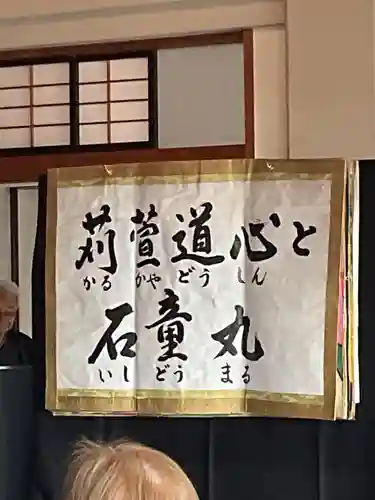 苅萱道心と
かるかやどうしん
石童丸
いしどうまる